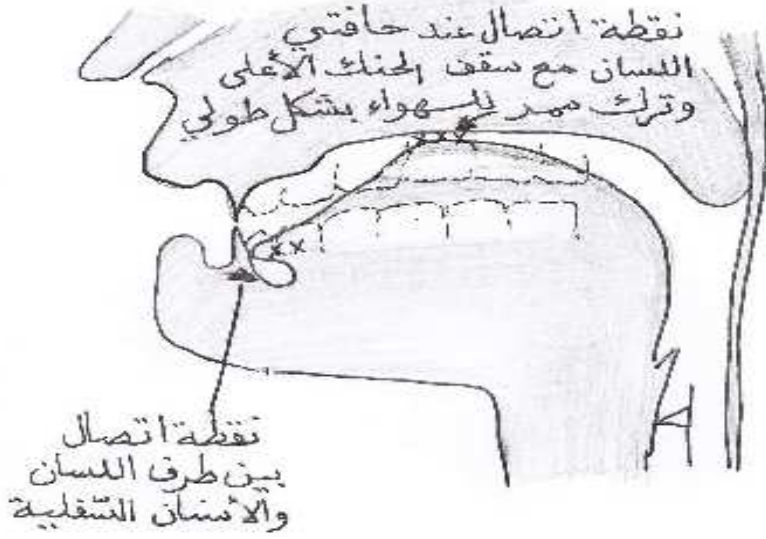 نقطة اتصال عند حافتي
اللسان مع سقف الحنك الأعلى
وترك ممر للهواء بشكل طولي
نقطة اتصال
بين طرف اللسان
والأسنان السفلية